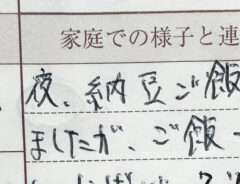 家庭での様子と連
夜、納豆ご飯
ましたが、ご飯